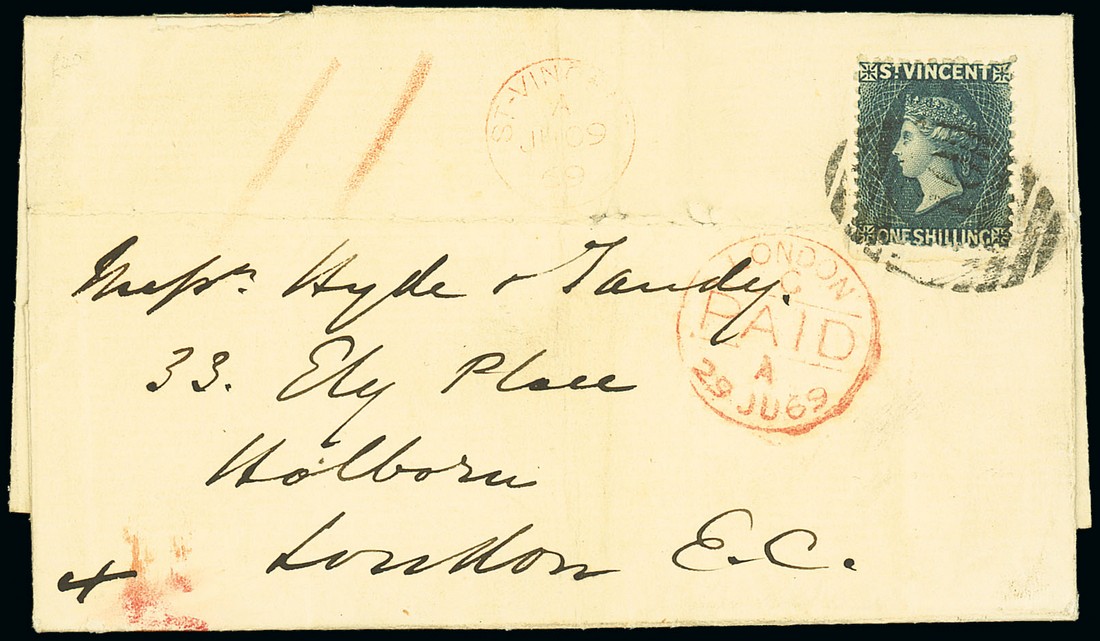 ST. VINCENT
ONE SHILLING
ST-VINC
A
JU 09
69
LONDON
C
PAID
A
29 JU 69
Messrs. Hyde & Tandy.
33. Ely Place
Holborn
London E.C.